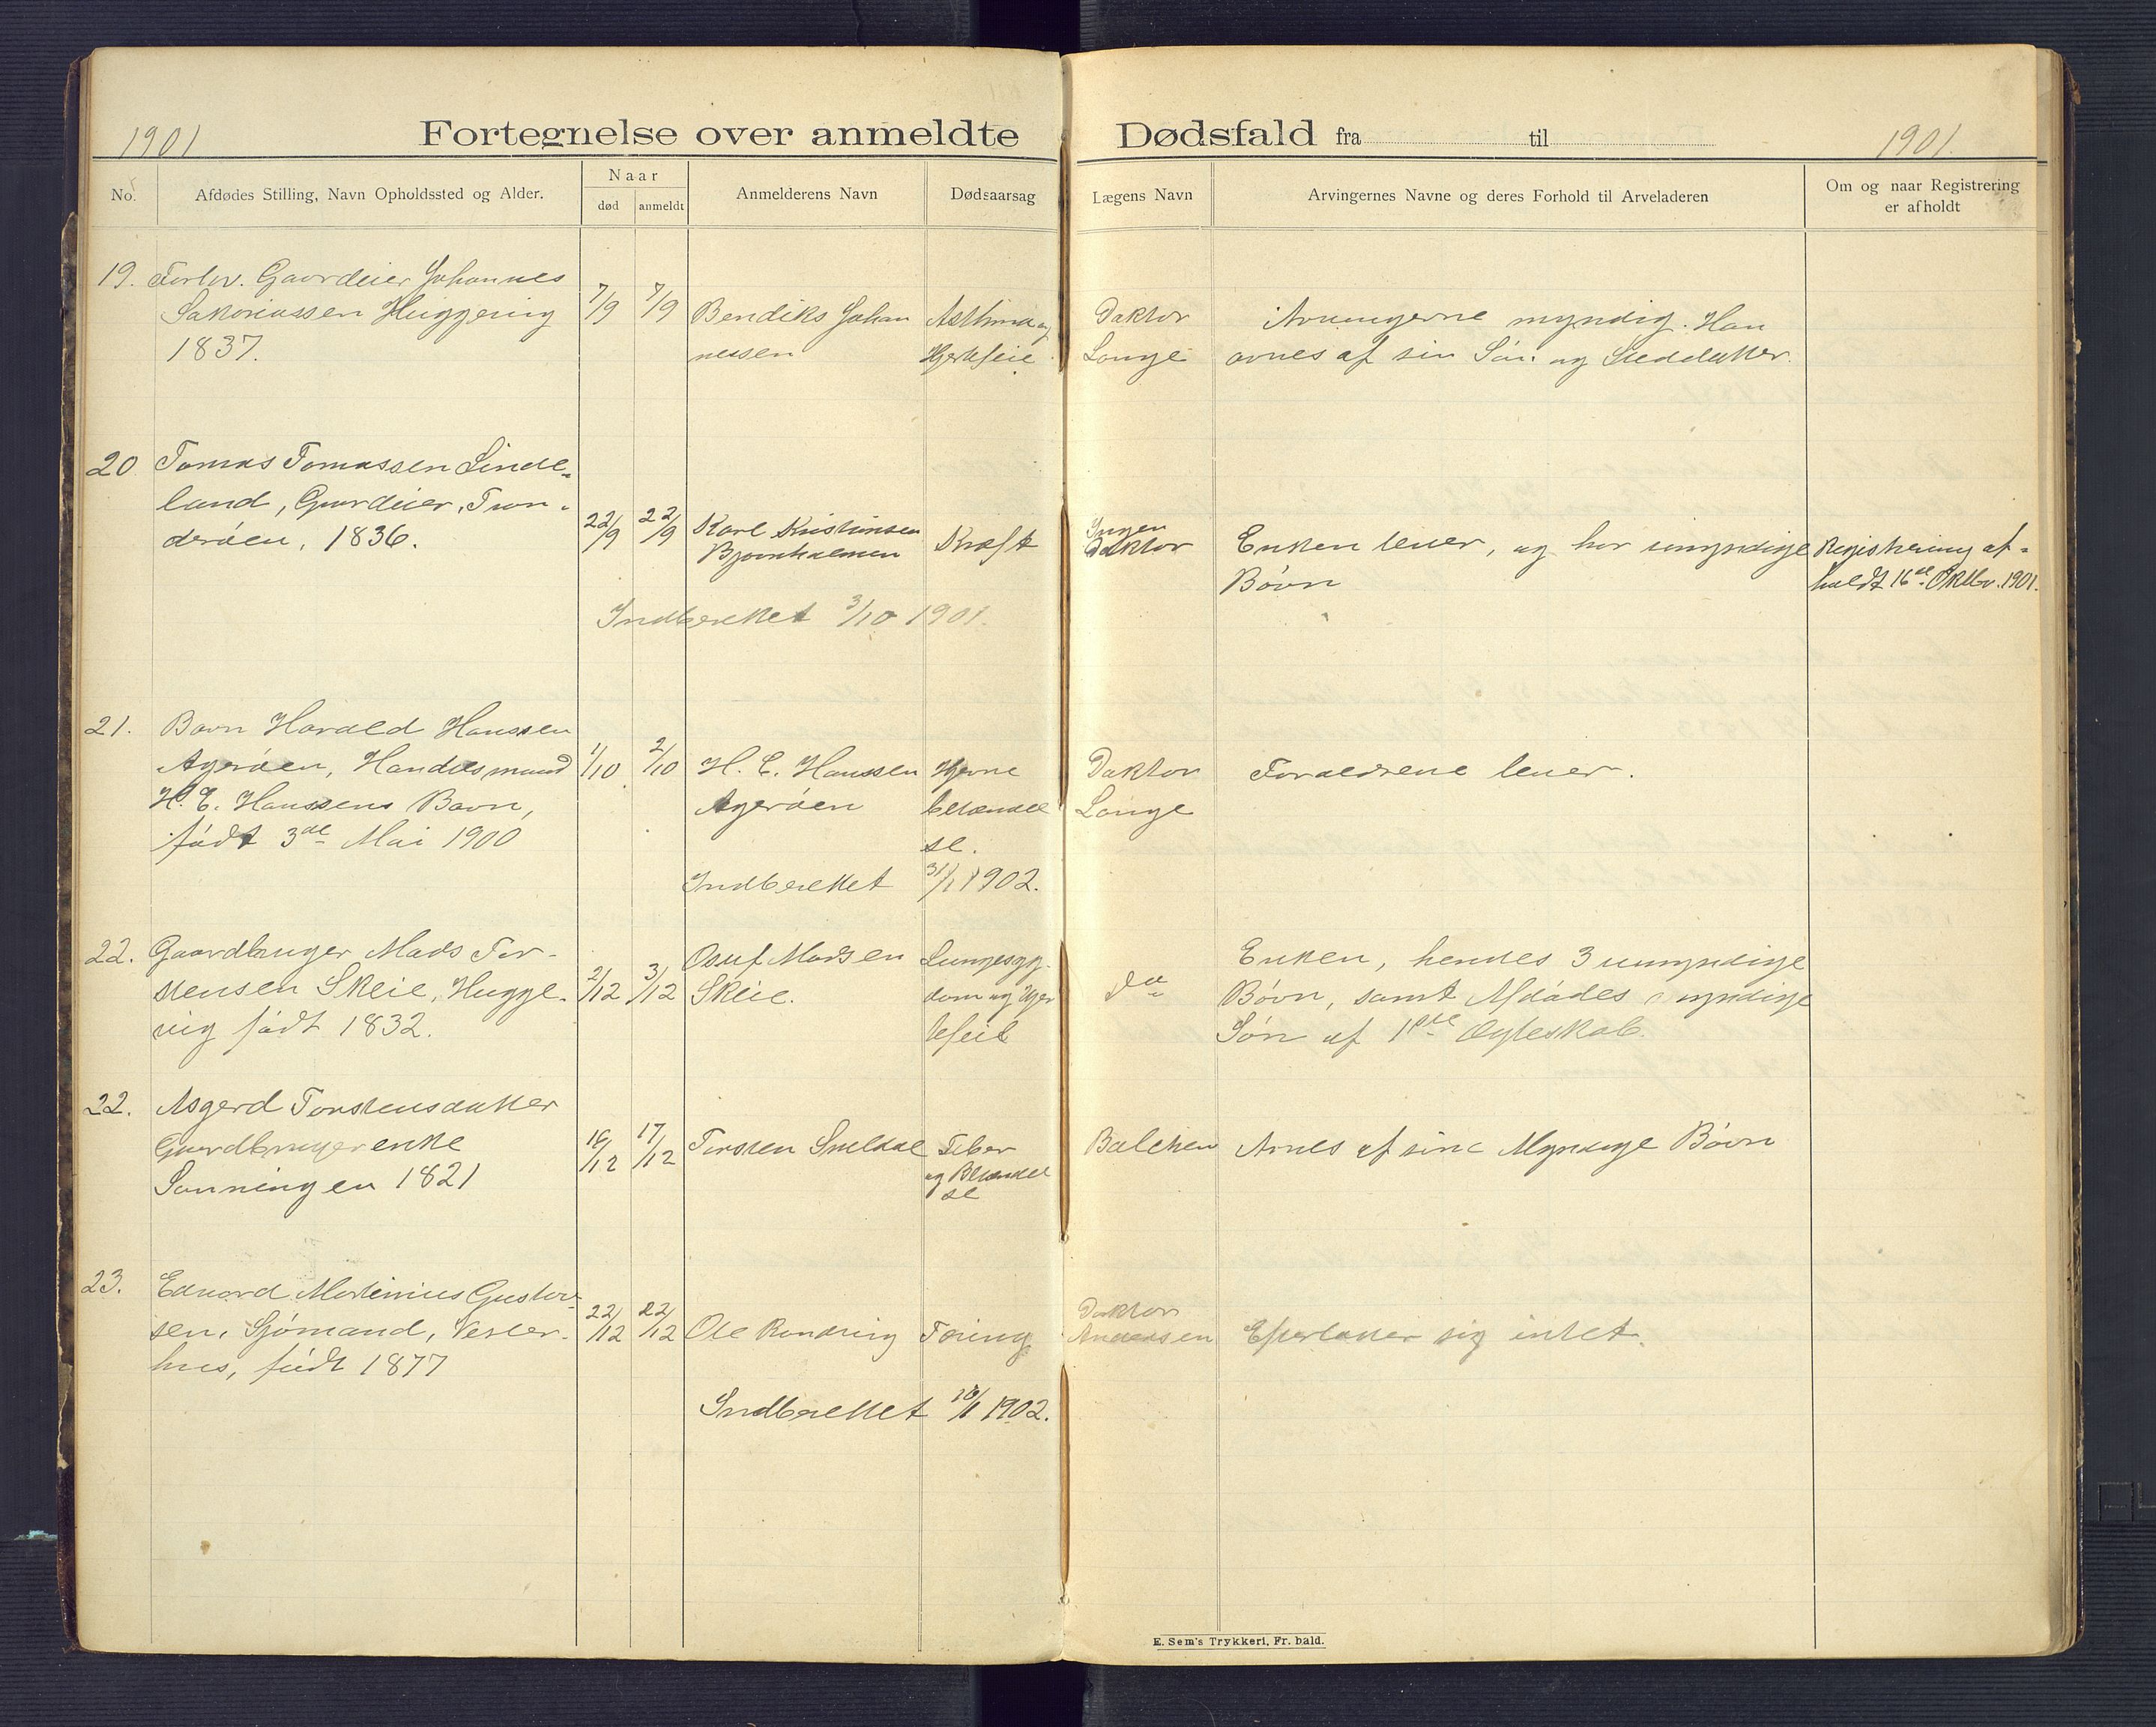 1901
Fortegnelse over anmeldte Dødsfald fra til
1901.
No. Afdødes Stilling, Navn Opholdssted og Alder. Naar død anmeldt Anmelderens Navn Dødsaarsag Lægens Navn Arvingernes Navne og deres Forhold til Arveladeren Om og naar Registrering er afholdt
19. Forhv. Gaardeier Johannes
Sakoriassen
1837.
7/9 7/9
Bendiks Johan
nessen
Asthma og
Hjertefeil
Doktor
Longe
Arvingerne myndig. Han
arves af sin Søn og Steddatter.
20 Tomas Tomassen Linde-
land, Gaardeier,
1836.
22/9 22/9
Karl Kristiansen
Bjørnholmen
Kræft
Ingen
Doktor
Enken lever, og har umyndige
Børn
Registrering af-
holdt 16de Oktbr. 1901.
Indberettet 3/10 1901.
21. Barn Harald Hanssen
Agerøen, Handelsmand
H. C. Hanssens Barn,
født 3de Mai 1900
1/10 2/10
H. C. Hanssen
Agerøen
Hjerne
betændel
se.
Doktor
Longe
Forældrene lever.
Indberettet 31/1 1902.
22. Gaardbruger Mads Tor-
stensen Skeie, Hugge-
vig født 1832.
2/12 3/12
Osuf Madsen
Skeie.
Lungesyg-
dom og Hjer
tefeil
do
Enken, hendes 3 umyndige
Børn, samt Afdødes myndige
Søn af 1ste Ægteskab.
22. Asgerd Torstensdatter
Gaardbrugerenke
Sanningen 1821
16/12 17/12
Torsten
Feber
og Betændel
se
Balchen
Arves af sine Myndige Børn
23. Edvard Martinius Gustav-
sen, Sjømand, Vester-
hus, født 1877
22/12 22/12
Ole Rondring
Tæring
Doktor
Andersen
Efterlader sig intet.
Indberettet 10/1 1902.
E. Sem's Trykkeri, Fr. hald.